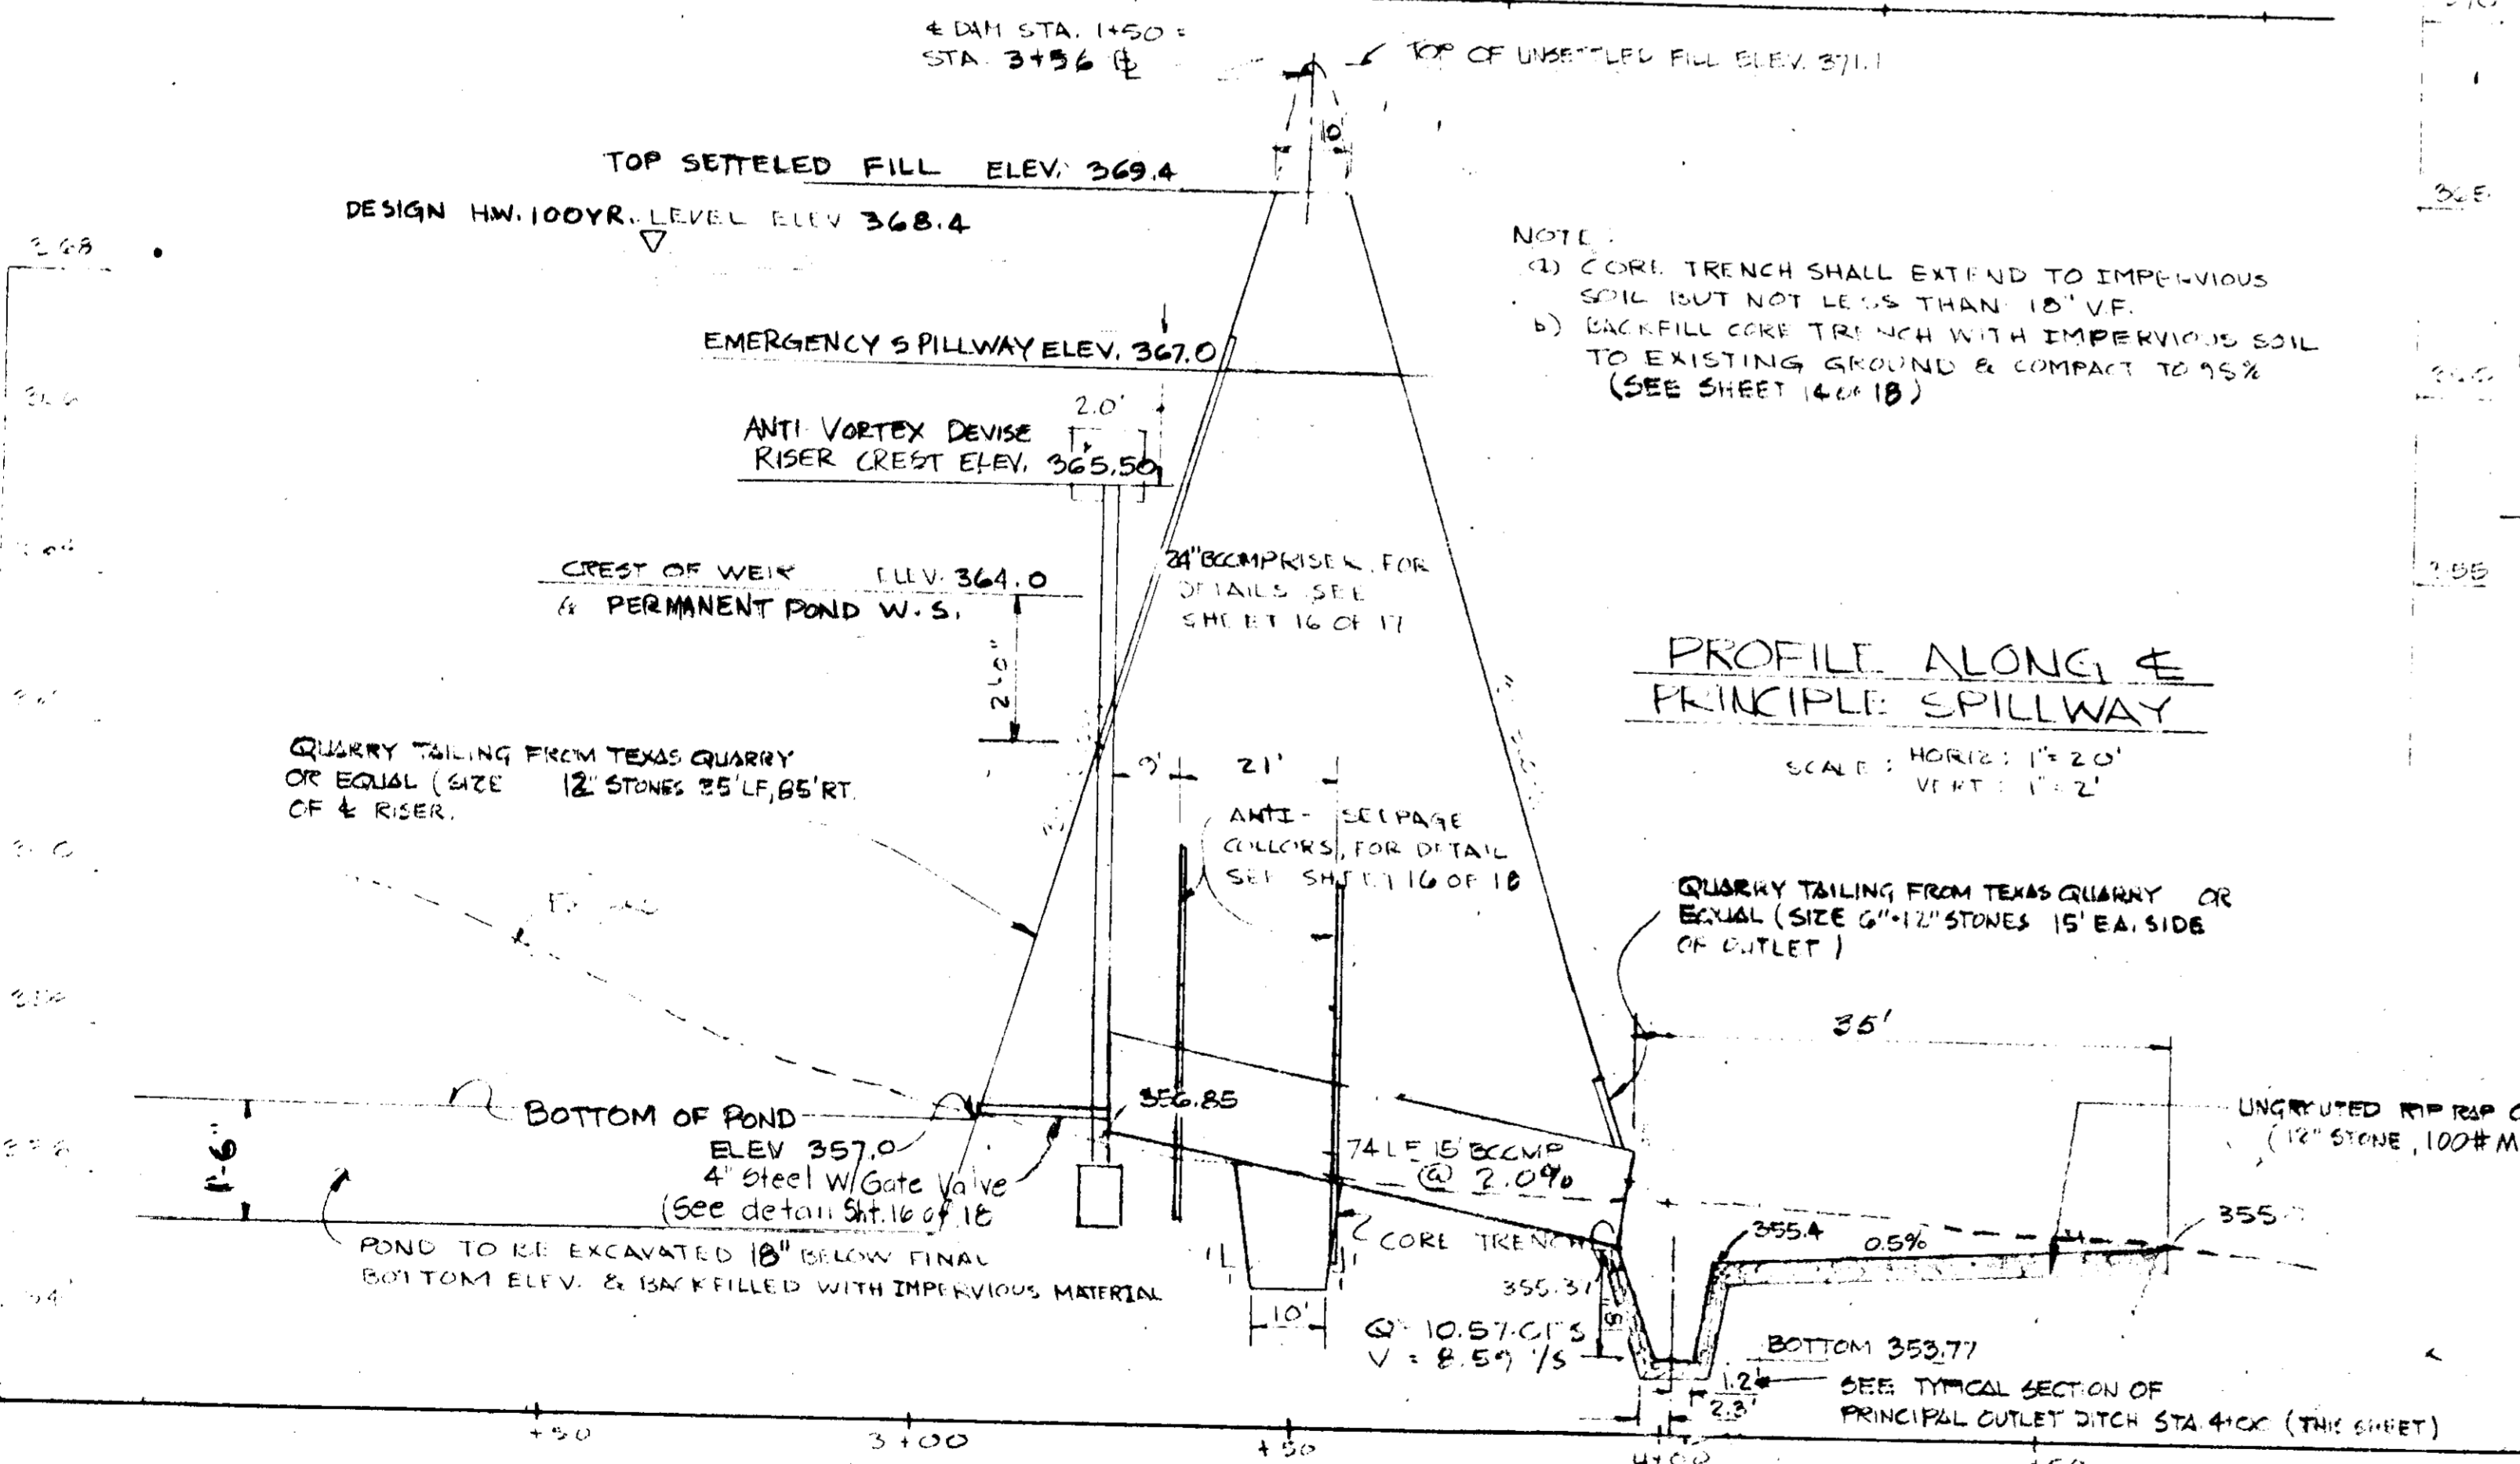 ℄ DAM STA. 1+50 =
STA. 3+56 ℄
TOP OF UNSETTLED FILL ELEV. 371.1
10'
TOP SETTELED FILL ELEV. 369.4
DESIGN H.W. 100YR. LEVEL ELEV 368.4
368
365
NOTE:
a) CORE TRENCH SHALL EXTEND TO IMPERVIOUS
SOIL BUT NOT LESS THAN 18" V.F.
b) BACKFILL CORE TRENCH WITH IMPERVIOUS SOIL
TO EXISTING GROUND & COMPACT TO 95%
(SEE SHEET 14 OF 18)
EMERGENCY SPILLWAY ELEV. 367.0
2.0'
ANTI VORTEX DEVISE
RISER CREST ELEV. 365.50
CREST OF WEIR ELEV. 364.0
& PERMANENT POND W.S.
2'-0"
24" BCCMP RISER, FOR
DETAILS SEE
SHEET 16 OF 17
355
PROFILE ALONG ℄
PRINCIPLE SPILLWAY
SCALE: HORIZ: 1"=20'
VERT: 1"=2'
QUARRY TAILING FROM TEXAS QUARRY
OR EQUAL (SIZE 12" STONES 35'LF, 85'RT.
OF ℄ RISER.
9' 21'
ANTI-SEEPAGE
COLLORS, FOR DETAIL
SEE SHEET 16 OF 18
QUARRY TAILING FROM TEXAS QUARRY OR
EQUAL (SIZE 6"-12" STONES 15' EA. SIDE
OF OUTLET)
35'
BOTTOM OF POND
ELEV 357.0
356.85
4" Steel W/Gate Valve
(See detail Sht. 16 of 18
1'-6"
74 LF 15" BCCMP
@ 2.0%
UNGROUTED RIP RAP
(12" STONE, 100# M
POND TO BE EXCAVATED 18" BELOW FINAL
BOTTOM ELEV. & BACKFILLED WITH IMPERVIOUS MATERIAL
CORE TRENCH
355.37
355.4
0.5%
355.
10'
Q = 10.57 CFS
V = 8.59 '/S
BOTTOM 353.77
1.2'
2.3'
SEE TYPICAL SECTION OF
PRINCIPAL OUTLET DITCH STA. 4+00 (THIS SHEET)
+50
3+00
+50
4+00